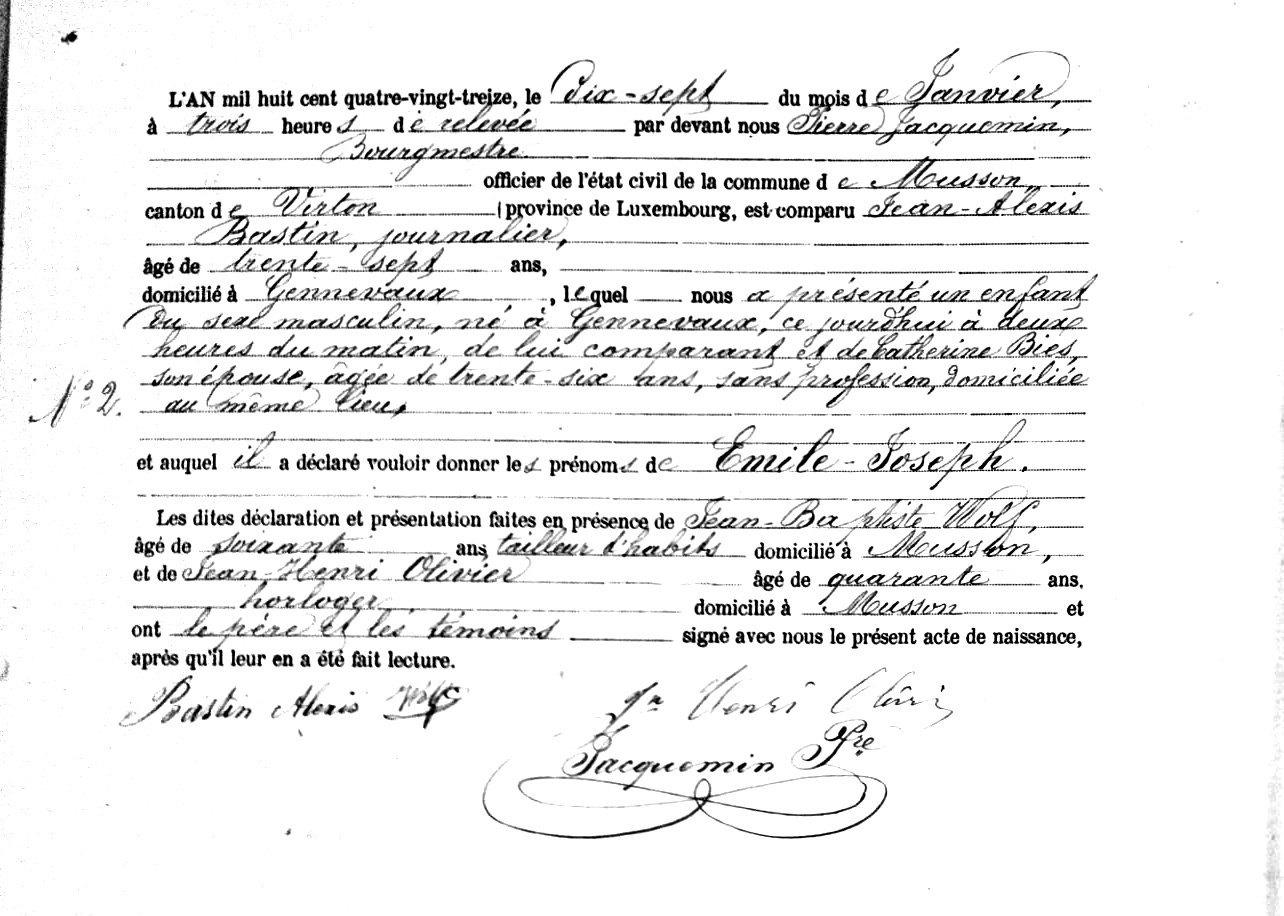 L'AN mil huit cent quatre-vingt-treize, le Dix-sept du mois de Janvier,
à trois heures de relevée par devant nous Pierre Jacquemin,
Bourgmestre
officier de l'état civil de la commune de Musson,
canton de Virton (province de Luxembourg, est comparu Jean-Alexis
Bastin, journalier,
âgé de trente-sept ans,
domicilié à Gennevaux, lequel nous a présenté un enfant
du sexe masculin, né à Gennevaux, ce jourd'hui à deux
heures du matin, de lui comparant et de Catherine Bies,
son épouse, âgée de trente-six ans, sans profession, domiciliée
N° 2. au même lieu,
et auquel il a déclaré vouloir donner les prénoms de Emile-Joseph.
Les dites déclaration et présentation faites en présence de Jean-Baptiste Wolf,
âgé de soixante ans, tailleur d'habits domicilié à Musson,
et de Jean-Henri Olivier âgé de quarante ans,
horloger domicilié à Musson et
ont le père et les témoins signé avec nous le présent acte de naissance,
après qu'il leur en a été fait lecture.
Bastin Alexis Henri
Jacquemin Pre